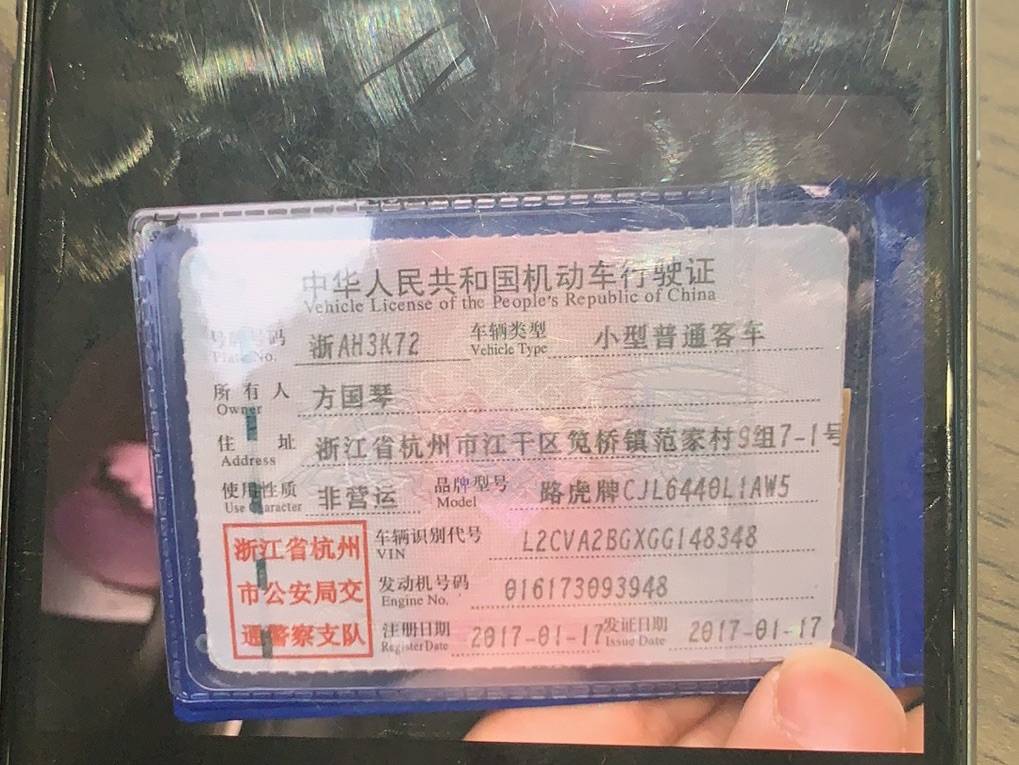 中华人民共和国机动车行驶证
Vehicle License of the People's Republic of China
号牌号码 浙AH3K72 车辆类型 小型普通客车
Plate No. Vehicle Type
所有人 方国琴
Owner
住址 浙江省杭州市江干区笕桥镇范家村9组7-1号
Address
使用性质 非营运 品牌型号 路虎牌CJL6440L1AW5
Use Character Model
浙江省杭州 车辆识别代号 L2CVA2BGXGG148348
VIN
市公安局交 发动机号码 016173093948
Engine No.
通警察支队 注册日期 2017-01-17 发证日期 2017-01-17
Register Date Issue Date